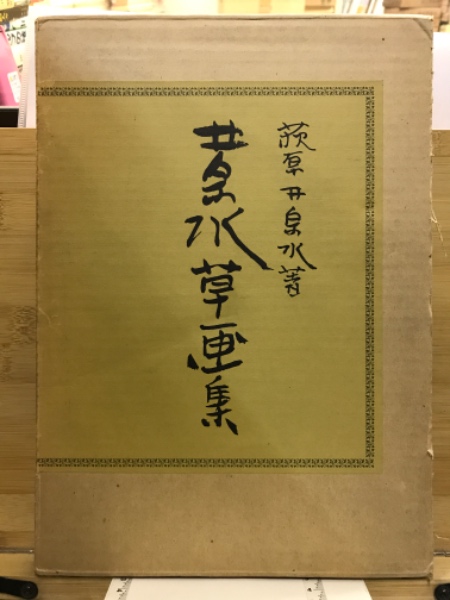 荻原井泉水著
井泉水草画集